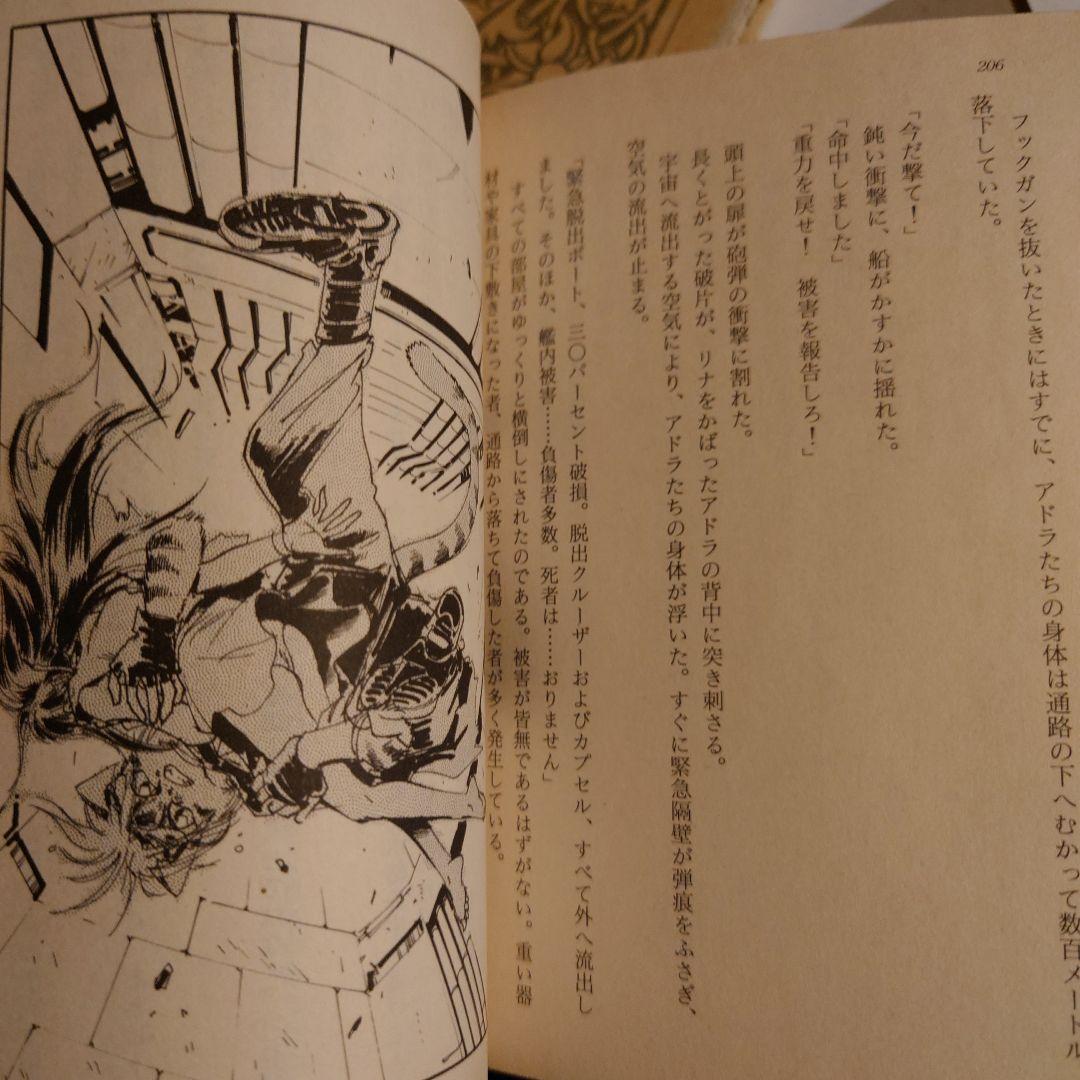 206
フックガンを抜いたときにはすでに、アドラたちの身体は通路の下へむかって数百メートル
落下していた。
「今だ撃て!」
鈍い衝撃に、船がかすかに揺れた。
「命中しました」
「重力を戻せ! 被害を報告しろ!」
頭上の扉が砲弾の衝撃に割れた。
長くとがった破片が、リナをかばったアドラの背中に突き刺さる。
宇宙へ流出する空気により、アドラたちの身体が浮いた。すぐに緊急隔壁が弾痕をふさぎ、
空気の流出が止まる。
「緊急脱出ボート、三〇パーセント破損。脱出クルーザーおよびカプセル、すべて外へ流出し
ました。そのほか、艦内被害……負傷者多数。死者は……おりません」
すべての部屋がゆっくりと横倒しにされたのである。被害が皆無であるはずがない。重い器
材や家具の下敷きになった者、通路から落ちて負傷した者が多く発生している。